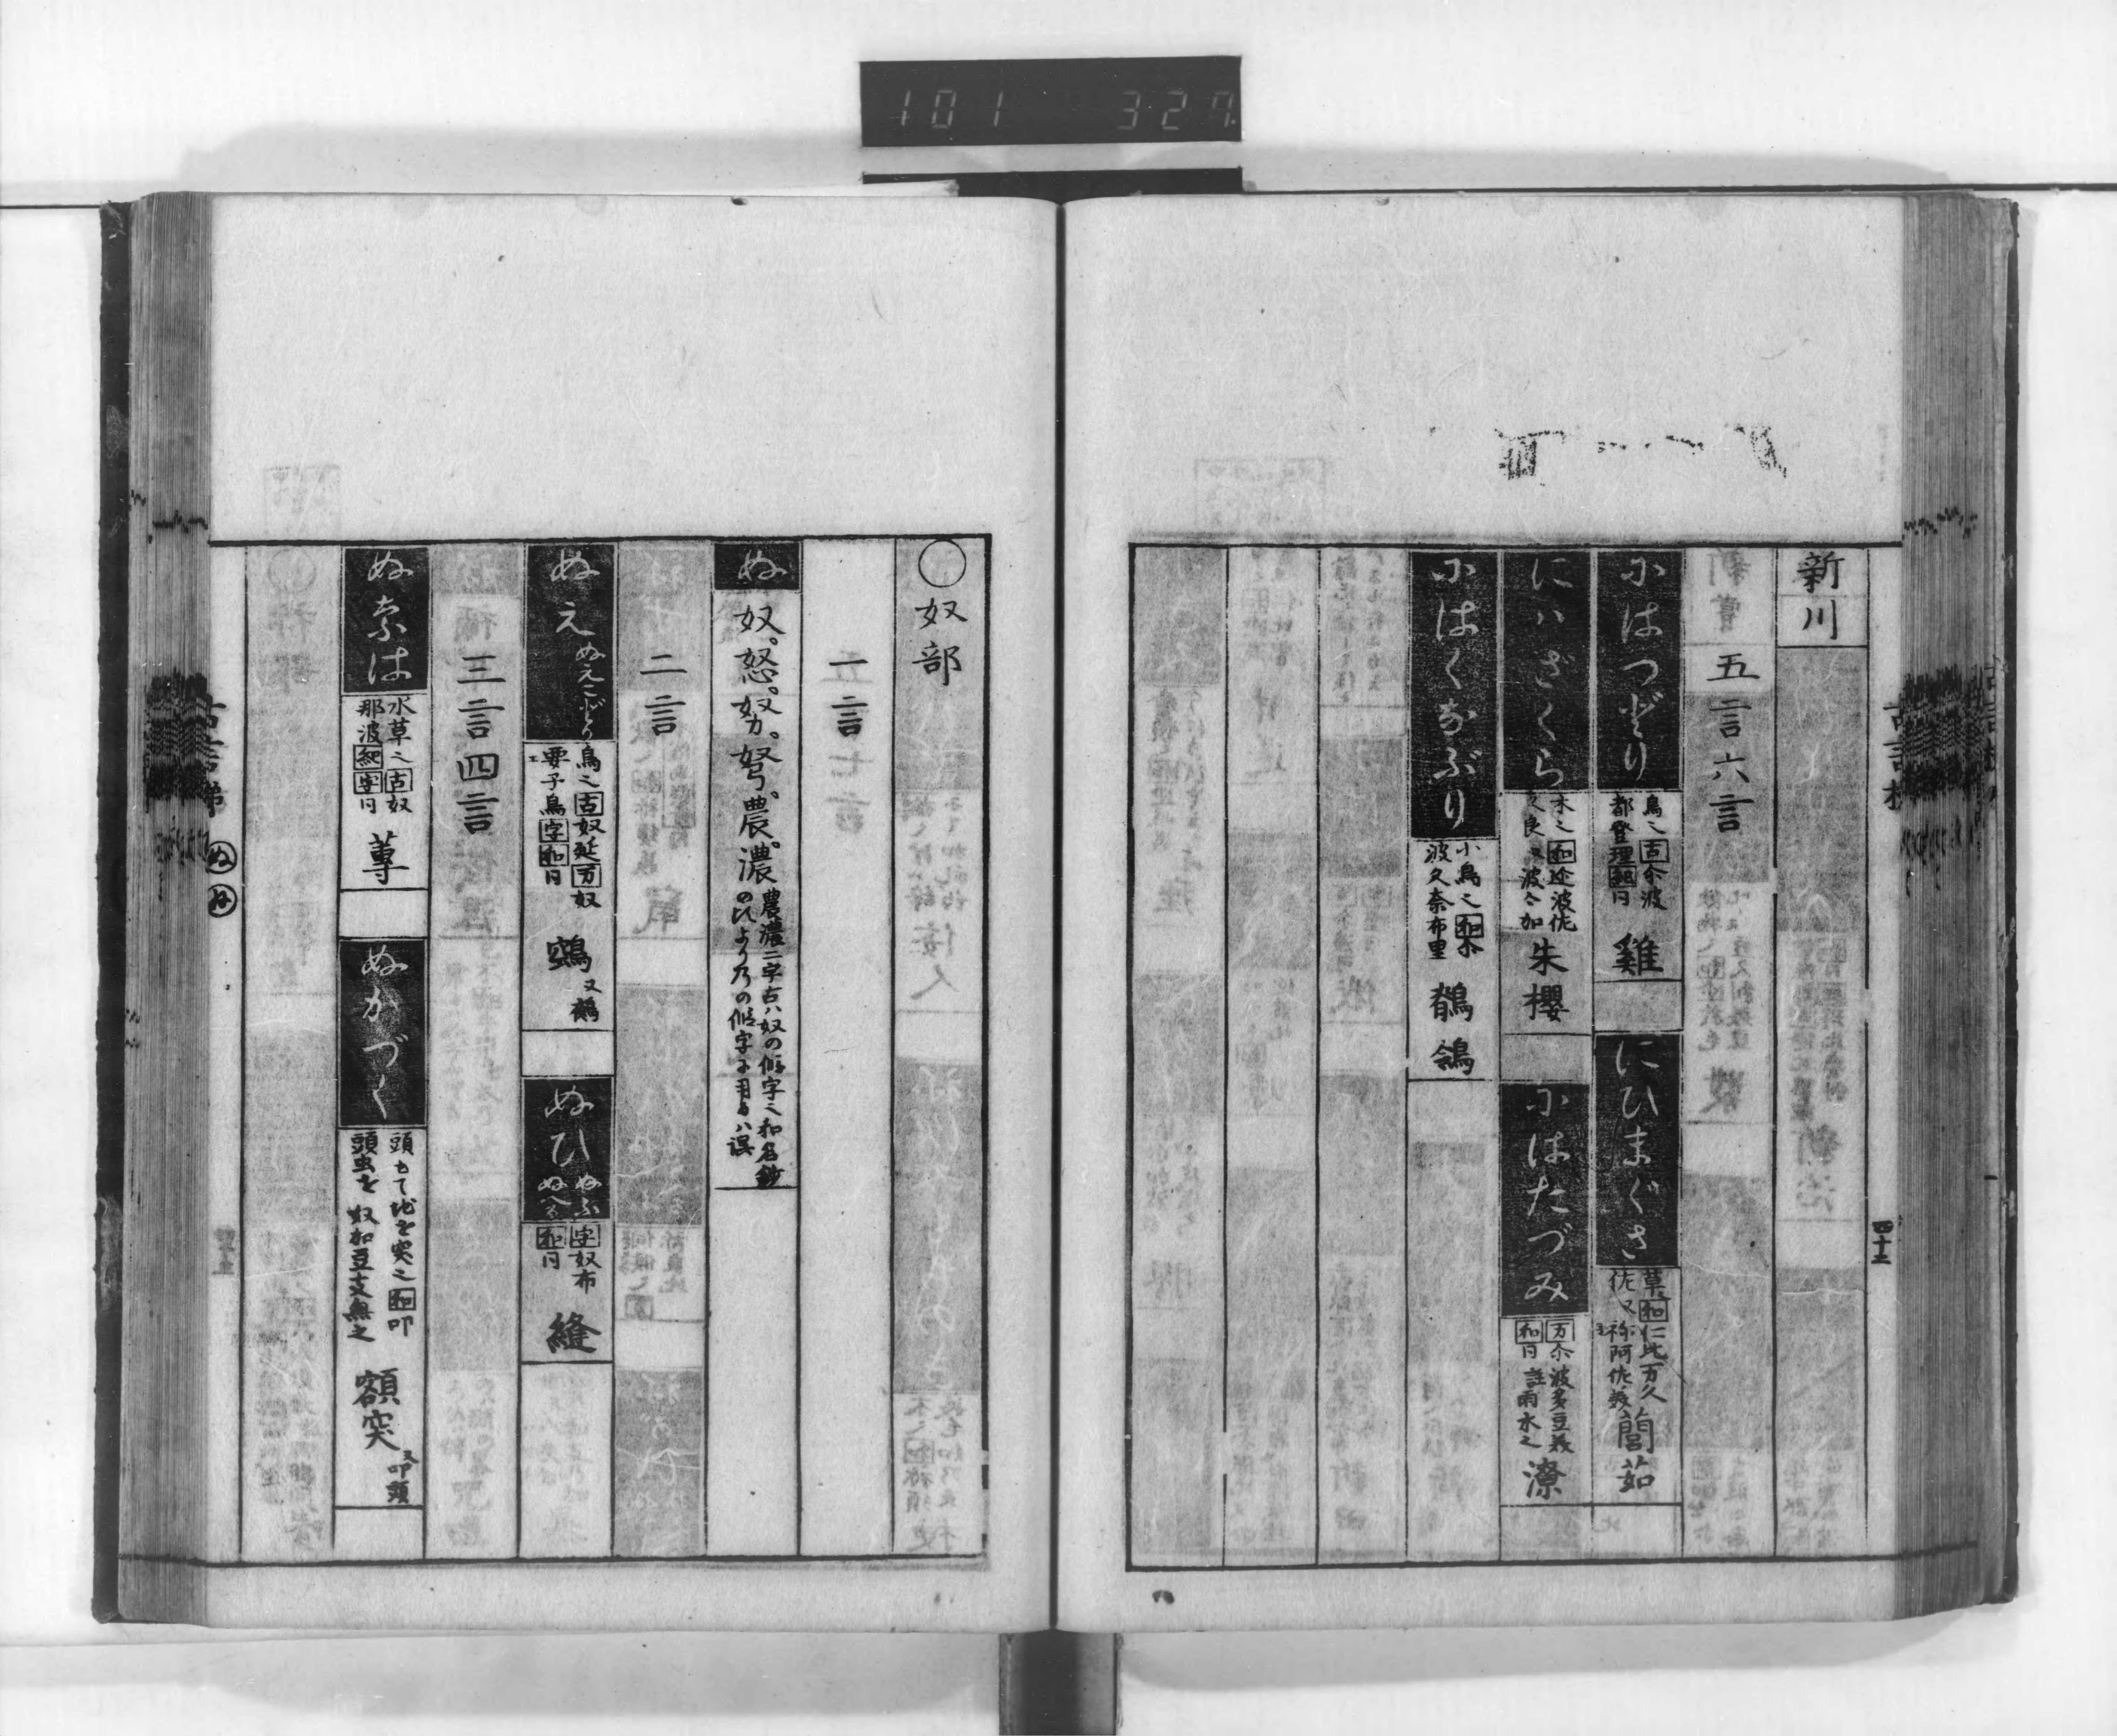 101 327
新川
五言六言
にはつどり
鳥之古尒波
都登理和同
雞
にひまぐさ
草之和仁比万久
佐又
祢阿佐
䕡茹
にハざくら
木之和迩波佐
久良又波々加
朱櫻
にはたづみ
万尒波多豆美
和同註雨水之
潦
にはくなぶり
小鳥之和尒
波久奈布里
鶺鴒
四十二
○奴部
一言
ぬ
奴。怒。努。弩。農。濃
農濃二字古ハ奴の假字之和名鈔
のほより乃の假字に用るハ誤
二言
ぬえ
ぬえこどり
鳥之古奴延万奴
要子鳥字和同
鵼
又鵺
ぬひ
ぬふ
ぬへる
字奴布
和同
縫
三言四言
ぬなは
水草之古奴
那波和字同
蓴
ぬかづく
頭もて地を突之和叩
頭虫を奴加豆支無之
額突
又叩頭